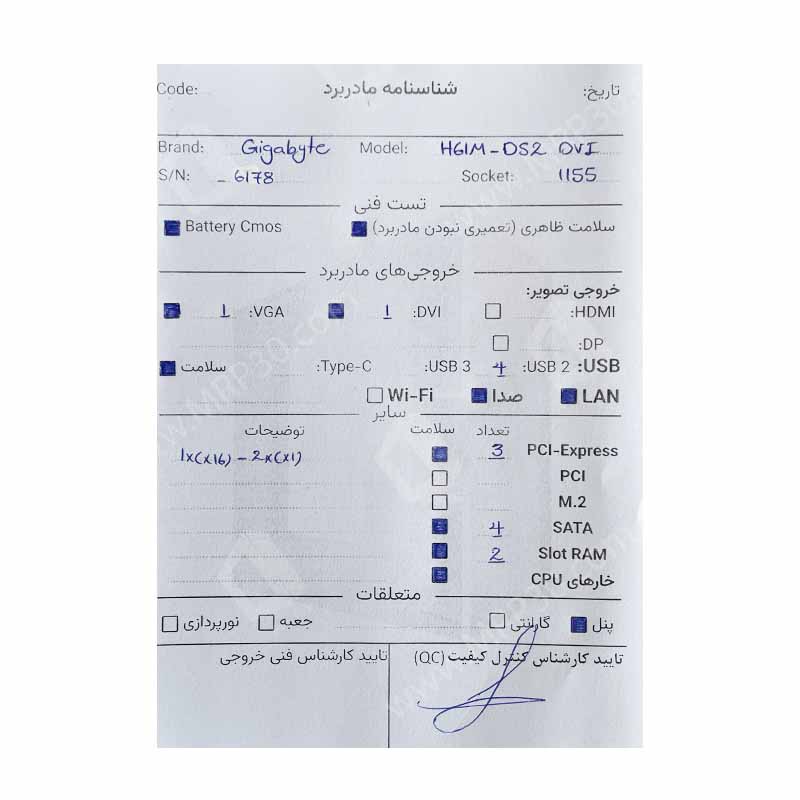 Code: شناسنامه مادربرد تاریخ:
Brand: Gigabyte Model: H61M-DS2 DVI
S/N: - 6178 Socket: 1155
تست فنی
سلامت ظاهری (تعمیری نبودن مادربرد) Battery Cmos
خروجی‌های مادربرد
خروجی تصویر:
HDMI: DVI: 1 VGA: 1
DP:
USB: USB 2: 4 USB 3: Type-C: سلامت
LAN صدا Wi-Fi
سایر
تعداد سلامت توضیحات
PCI-Express 3 1x(x16) - 2x(x1)
PCI
M.2
SATA 4
Slot RAM 2
خارهای CPU
متعلقات
پنل گارانتی جعبه نورپردازی
تایید کارشناس کنترل کیفیت (QC) تایید کارشناس فنی خروجی